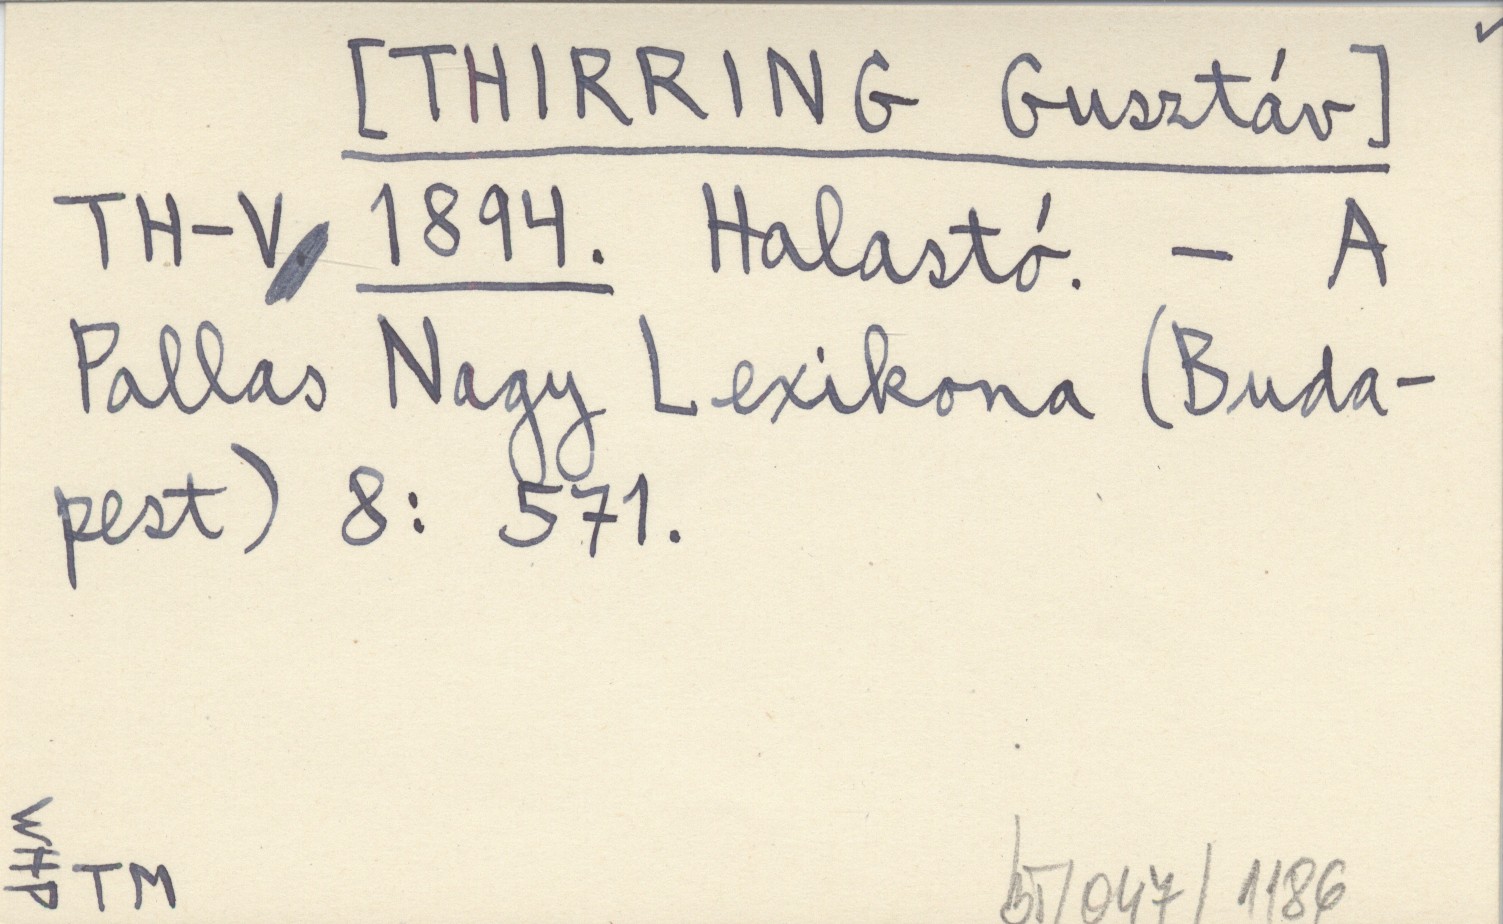 [THIRRING Gusztáv]
TH-V 1894. Halastó. - A
Pallas Nagy Lexikona (Buda-
pest) 8: 571.
WHP
TM
/047/1186